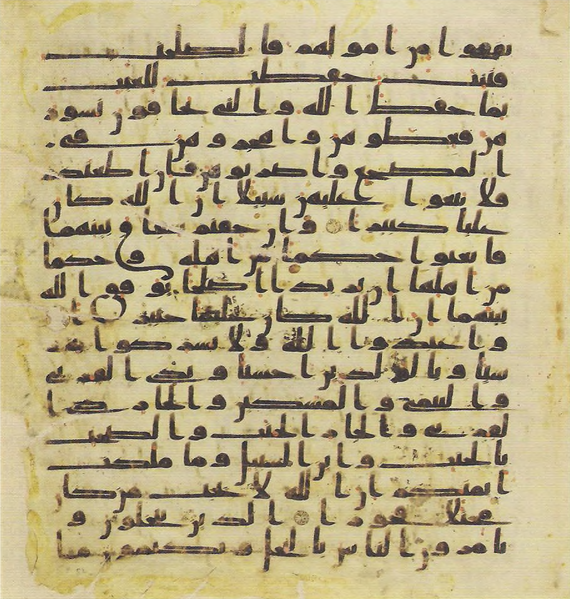 نفقوا من امولهم فالصلحت
قنتت حفظت للغيب
بما حفظ الله والتى تخافون نشوز
هن فعظوهن واهجروهن فى
المضجع واضربوهن فان اطعنكم
فلا تبغوا عليهن سبيلا ان الله كان
عليا كبيرا وان خفتم شقاق بينهما
فابعثوا حكما من اهله وحكما
من اهلها ان يريدا اصلحا يوفق الله
بينهما ان الله كان عليما خبيرا
واعبدوا الله ولا تشركوا به
شيا وبالولدين احسنا وبذى القربى
واليتمى والمسكين والجار ذى ا
لقربى والجار الجنب والصحب
بالجنب وابن السبيل وما ملكت
ايمنكم ان الله لا يحب من كان
مختلا فخورا الذين يبخلون و
يامرون الناس بالبخل ويكتمون ما